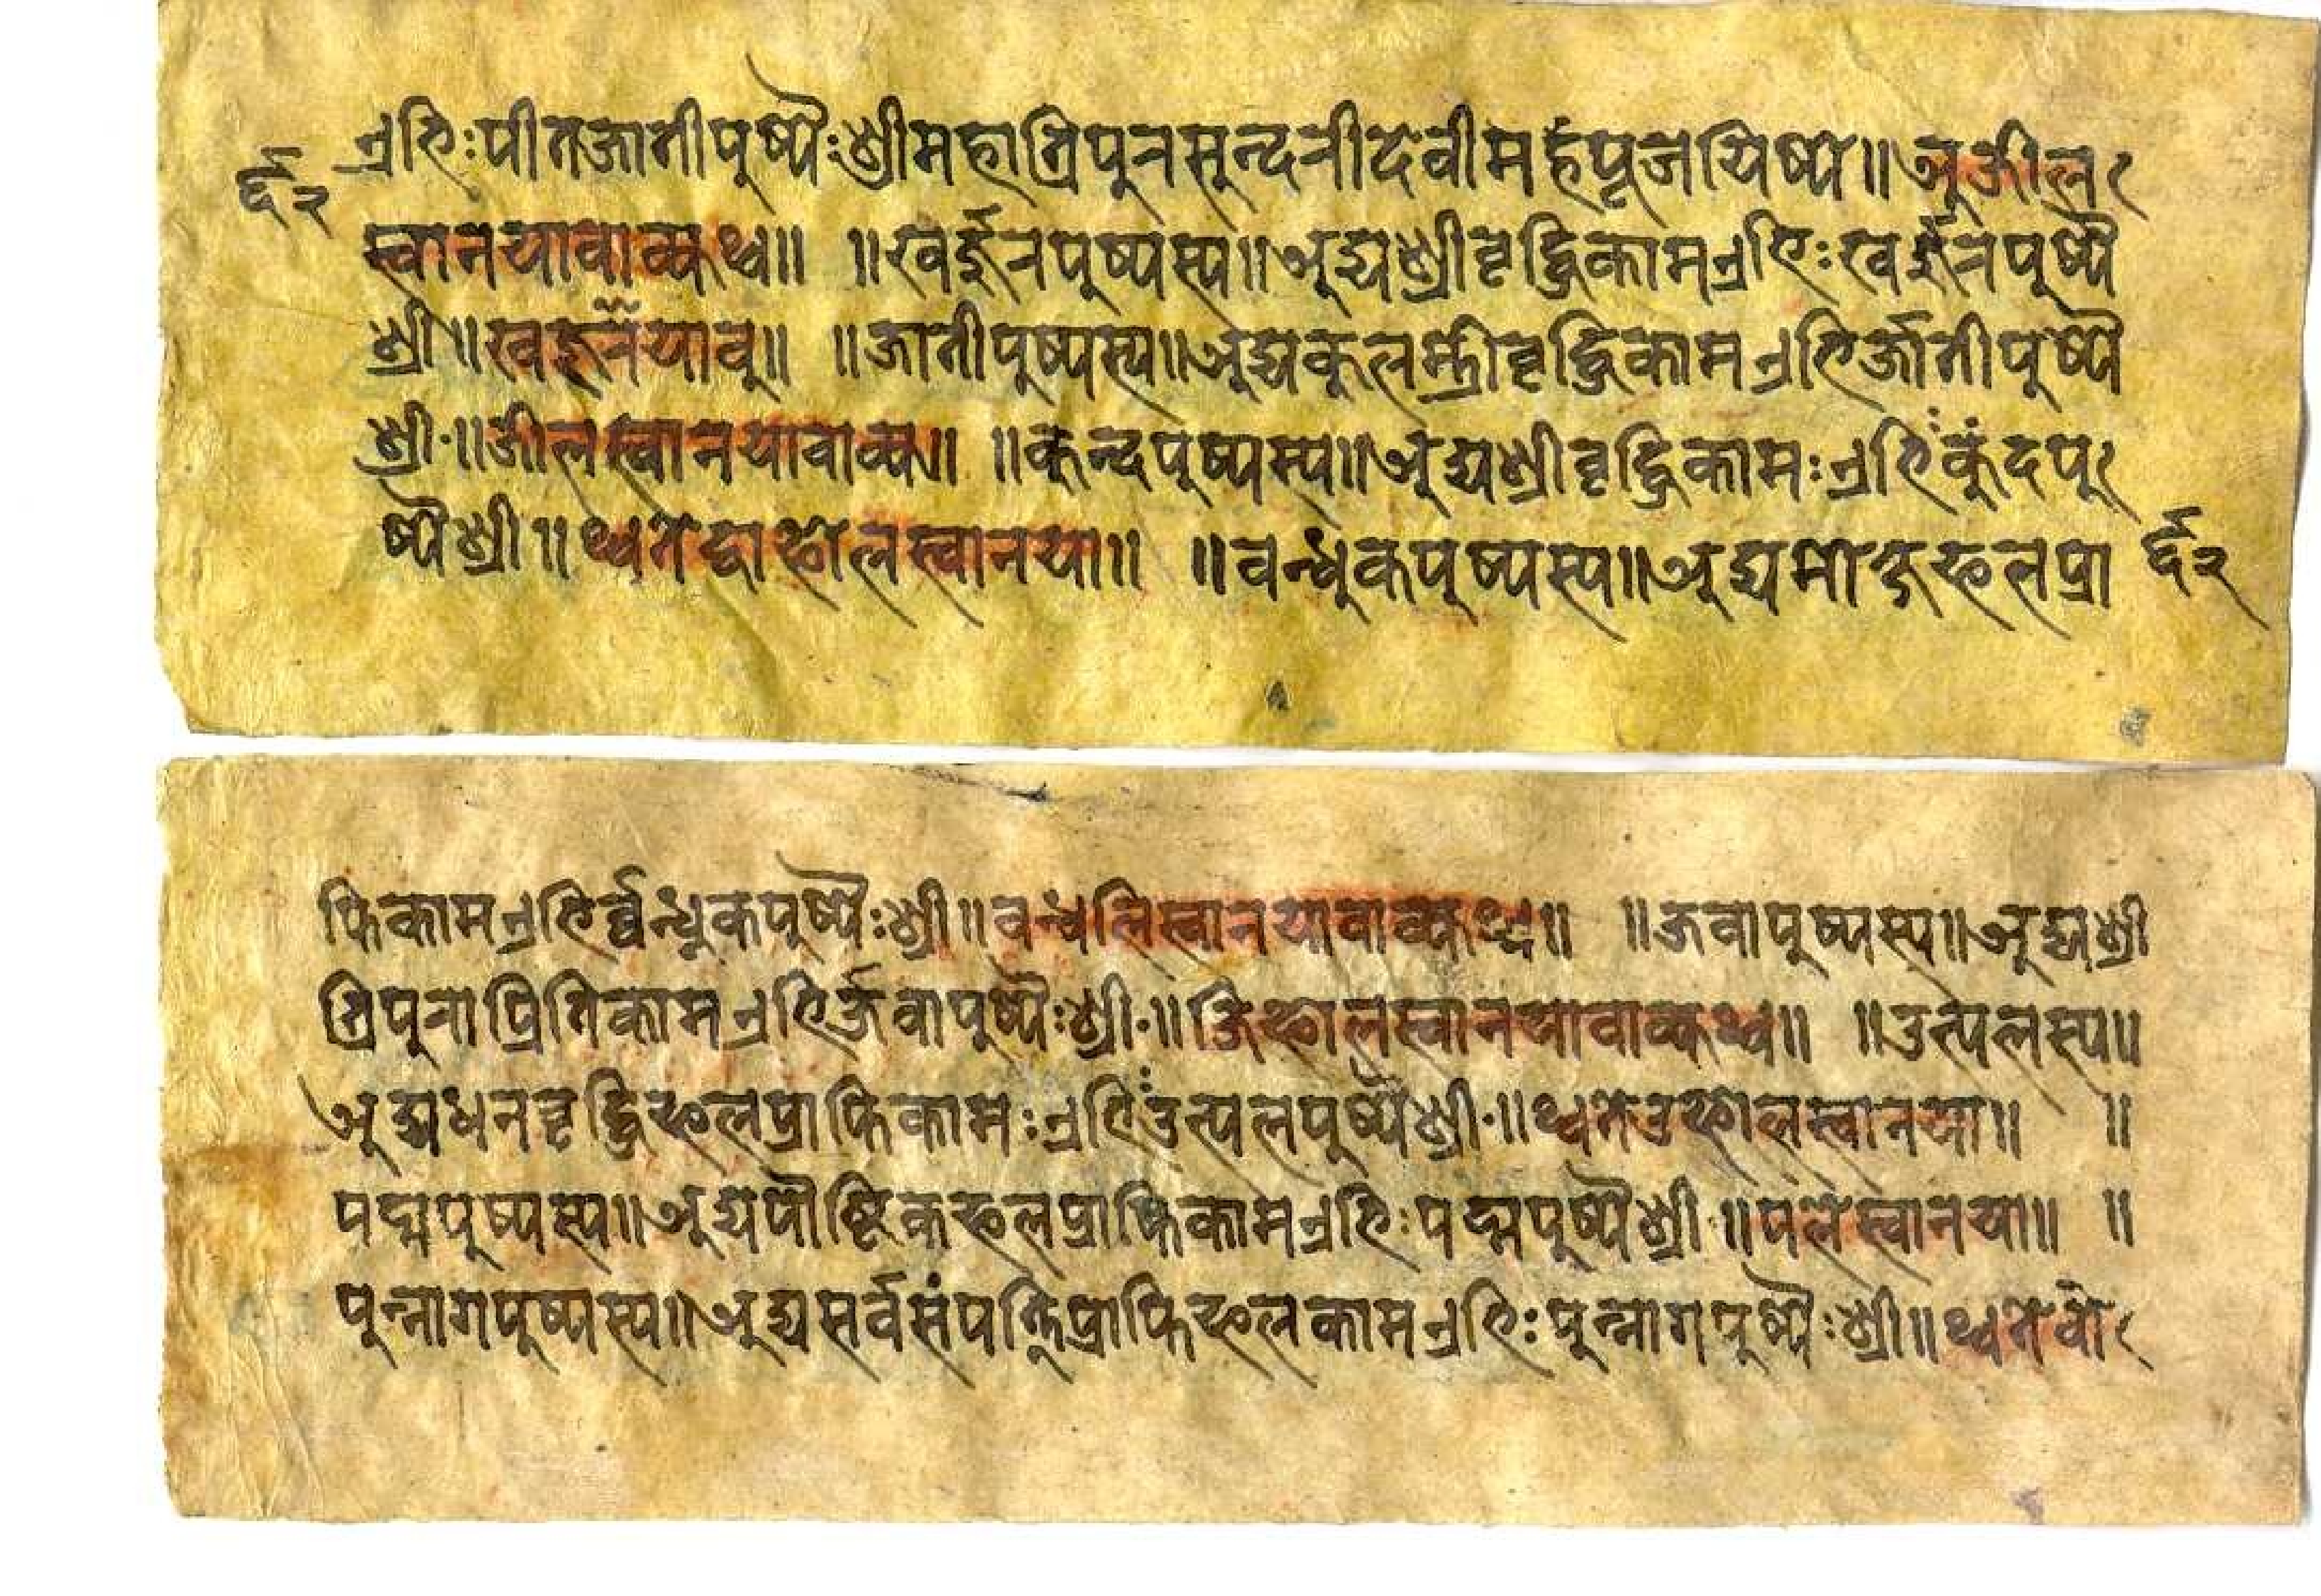 एभिःपीतजातीपुष्पैःश्रीमहात्रिपुरसुन्दरीदेवीमहंपूजयिष्ये॥अजील
६२
स्वानयावाक्यथ्व॥ ॥खर्ज्जूरपुष्पस्य॥अद्यश्रीवृद्धिकामएभिःखर्ज्जूरपुष्पै
श्री॥खर्ज्जूरयाव॥ ॥जातीपुष्पस्य॥अद्यकुलस्त्रीवृद्धिकामएभिर्जातीपुष्पै
श्री॥जीलस्वानयावाक्य॥ ॥कुन्दपुष्पस्य॥अद्यश्रीवृद्धिकामःएभिःकुंदपु
ष्पैश्री॥थ्वतेदाफोलस्वानया॥ ॥वन्धुकपुष्पस्य॥अद्यमोक्षफलप्रा
६२
प्तिकामएभिर्व्वन्धुकपुष्पैःश्री॥वन्धलिस्वानयावाक्यथ्व॥ ॥जवापुष्पस्य॥अद्यश्री
त्रिपुराप्रितिकामएभिर्जवापुष्पैःश्री॥जिफोलस्वानयावाक्यथ्व॥ ॥उत्पलस्य॥
अद्यधनवृद्धिफलप्राप्तिकामःएभिःउत्पलपुष्पैश्री॥थ्वतेउफोलस्वानया॥ ॥
पद्मपुष्पस्य॥अद्यपौष्टिकफलप्राप्तिकामएभिःपद्मपुष्पैश्री॥पलेस्वानया॥ ॥
पुन्नागपुष्पस्य॥अद्यसर्वसंपत्तिप्राप्तिफलकामएभिःपुन्नागपुष्पैःश्री॥थ्वतेवो